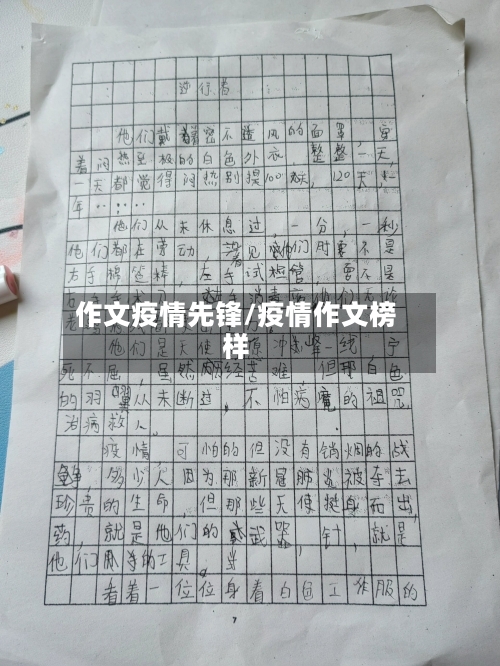 逆行者
他们戴着密不透风的面罩，穿
着闷热至极的白色外衣，整整一天，
一天都觉得闷热别提100天，120天，一
年……
他们从未休息过，一分，一秒
他们都在劳动，见他们时要不是
右手棉签精，左手试管，要不是
作文疫情先锋/疫情作文榜
样
他们是天使 原冲 一线 宁
死不屈，虽然 经苦难 但那白色
的羽翼从未断过，不怕病魔的诅咒，
治病救人。
疫情 可怕的但没有销烟的战
，多少人因为那新冠肺炎被夺去
珍贵的生命，但那些天使挺身而出，
药，就是他们的武器，针，就是
他们 手的工具，
看着一位位身着白色工作服的
7